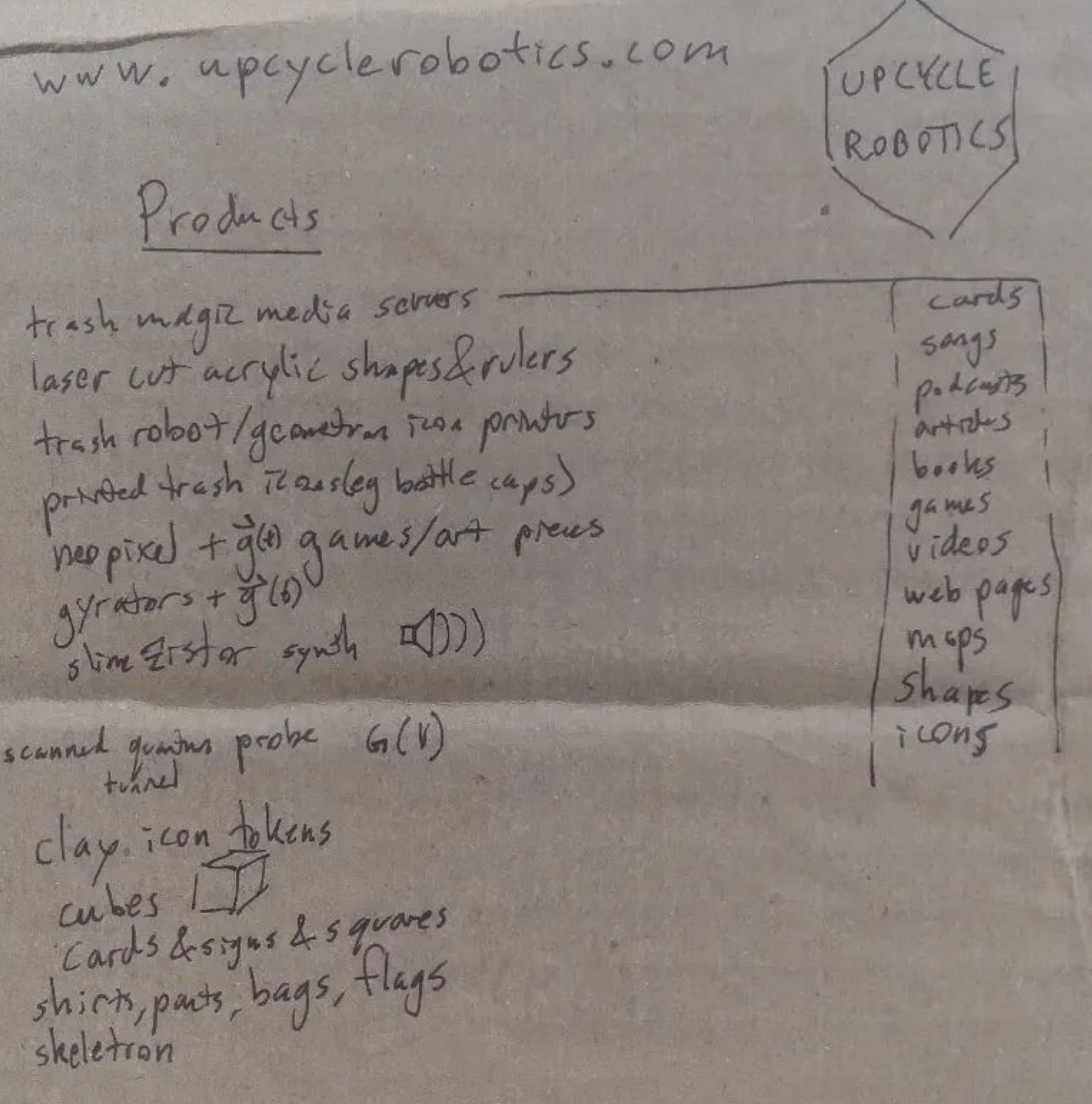 www.upcyclerobotics.com
UPCYCLE
ROBOTICS
Products
trash magic media servers
laser cut acrylic shapes & rulers
trash robot/geometron icon printers
printed trash icons (eg bottle caps)
neopixel + g(t) games/art pieces
gyrators + g(t)
slimezistor synth
scanned quantum probe G(V)
tunnel
clay icon tokens
cubes
cards & signs & squares
shirts, pants, bags, flags
skeletron
cards
songs
podcasts
articles
books
games
videos
web pages
maps
shapes
icons